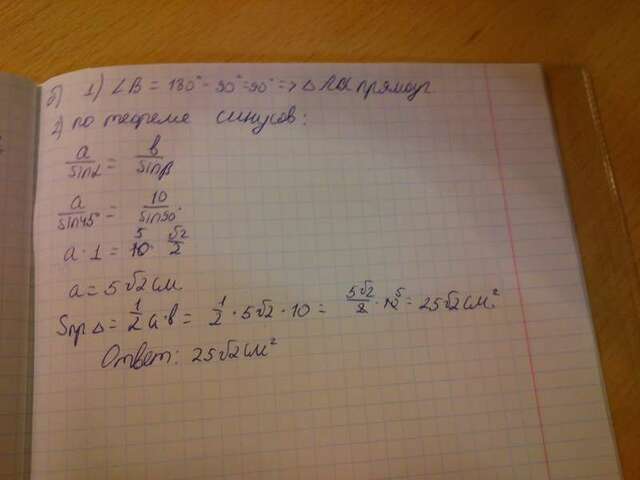 б) 1) ∠B = 180° - 90° = 90° => △ ABC прямоуг
2) по теореме синусов:
a/sinα = b/sinβ
a/sin45° = 10/sin90°
a · 1 = 10 · √2/2 5
a = 5√2 см
Sпр△ = 1/2 a·b = 1/2 · 5√2 · 10 = 5√2/2 · 10 5 = 25√2 см²
Ответ: 25√2 см²